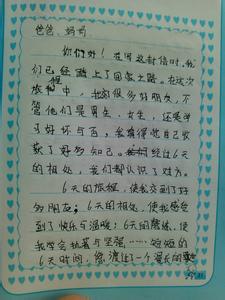 爸爸、妈妈
你们好！在写这封信时，我
们已经踏上了回家之路。在这次
旅程中，我和很多好朋友，不
管他们是男生、女生，还是学
习好坏与否，我觉得自己收
获了好多知己。经过6天
的相处，我们都认识了对方。
6天的旅程，使我交到了好
多朋友；6天的相处，使我感受
到了快乐与温暖；6天的磨练，使
我学会执着与坚强……短短的
6天时间，像渡过了一个漫长的